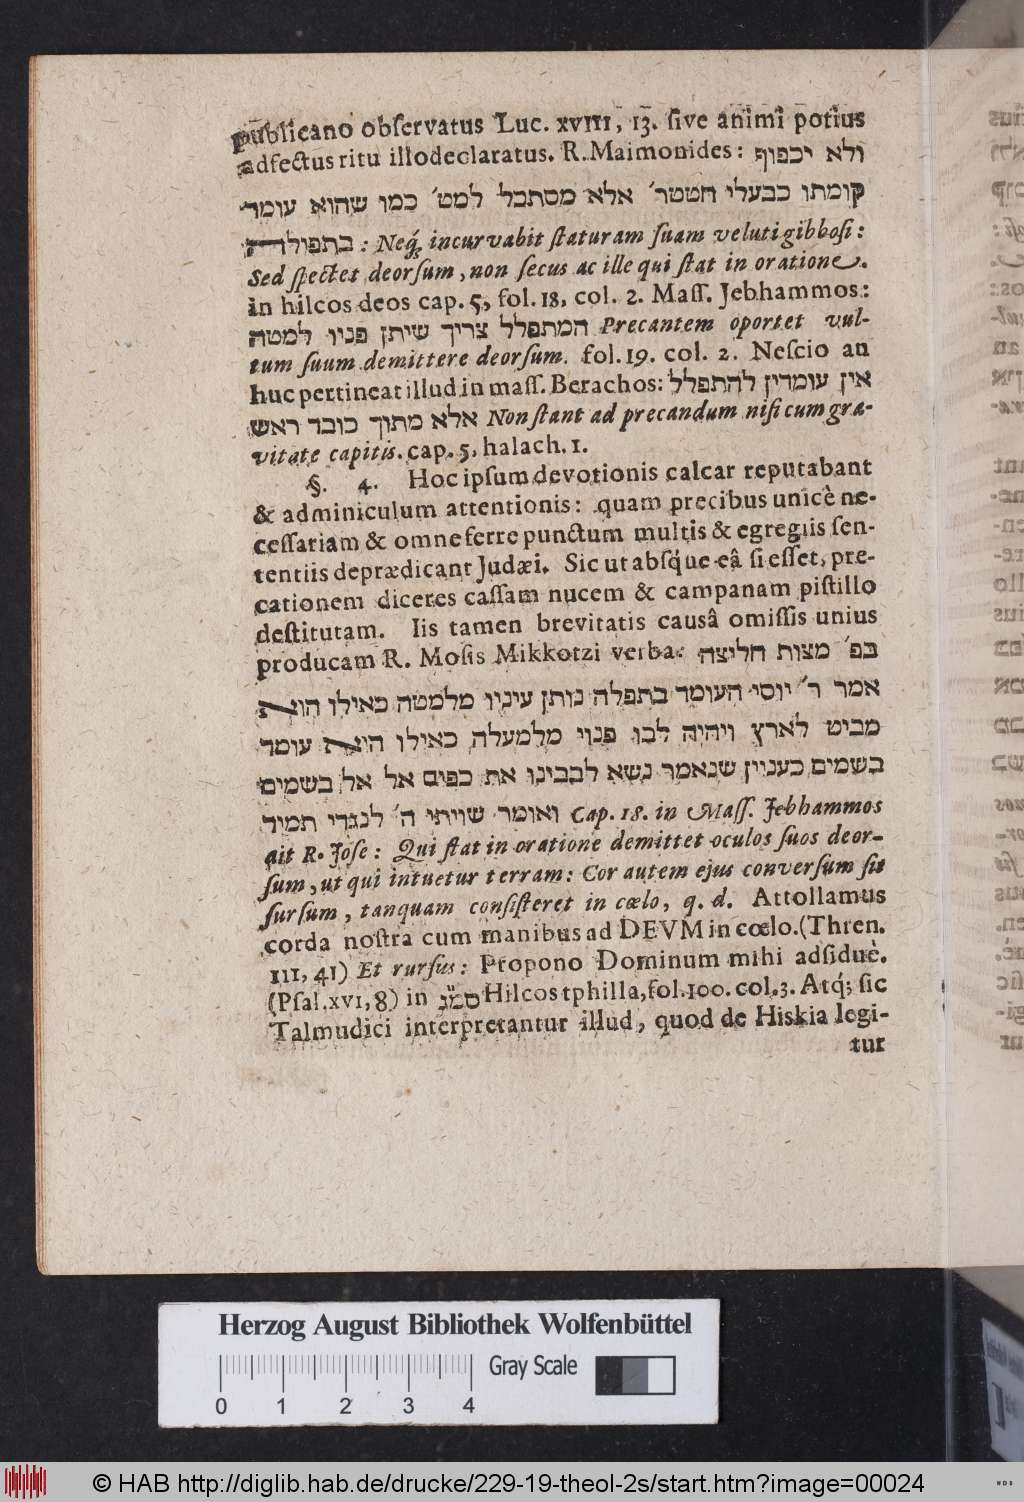 publicano observatus Luc. xviii, 13. sive animi potius
adfectus ritu illo declaratus. R. Maimonides: ולא יכפוף
קומתו כבעלי חטטר׳ אלא מסתכל למט׳ כמו שהוא עומד
בתפולה : Neq́; incurvabit staturam suam veluti gibbosi:
Sed spectet deorsum, non secus ac ille qui stat in oratione.
in hilcos deos cap. 5, fol. 18, col. 2. Mass. Jebhammos:
המתפלל צריך שיתן פניו למטה Precantem oportet vul-
tum suum demittere deorsum. fol. 19. col. 2. Nescio an
huc pertineat illud in mass. Berachos: אין עומדין להתפלל
אלא מתוך כובד ראש Non stant ad precandum nisi cum gra-
vitate capitis. cap. 5, halach. 1.
§. 4. Hoc ipsum devotionis calcar reputabant
& adminiculum attentionis: quam precibus unicè ne-
cessariam & omne ferre punctum multis & egregiis sen-
tentiis deprædicant Judæi. Sic ut absq́ue eâ si esset, pre-
cationem diceres cassam nucem & campanam pistillo
destitutam. Iis tamen brevitatis causâ omissis unius
producam R. Mosis Mikkotzi verba: בפ׳ מצות חליצה
אמר ר׳ יוסי העומד בתפלה נותן עיניו מלמטה כאילו הוא
מביט לארץ ויהיה לבו פנוי מלמעלה כאילו היא עומד
בשמים כעניין שנאמר נשא לבבינו את כפים אל אל בשמים
ואומר שויתי ה׳ לנגדי תמיד Cap. 18. in Mass. Jebhammos
ait R. Jose: Qui stat in oratione demittet oculos suos deor-
sum, ut qui intuetur terram: Cor autem ejus conversum sit
sursum, tanquam consisteret in cœlo, q. d. Attollamus
corda nostra cum manibus ad DEVM in cœlo. (Thren.
iii, 41) Et rursus: Propono Dominum mihi adsiduè.
(Psal. xvi, 8) in סמ״ג Hilcos tphilla, fol. 100. col. 3. Atq́; sic
Talmudici interpretantur illud, quod de Hiskia legi-
tur
Herzog August Bibliothek Wolfenbüttel
Gray Scale
0 1 2 3 4
© HAB http://diglib.hab.de/drucke/229-19-theol-2s/start.htm?image=00024